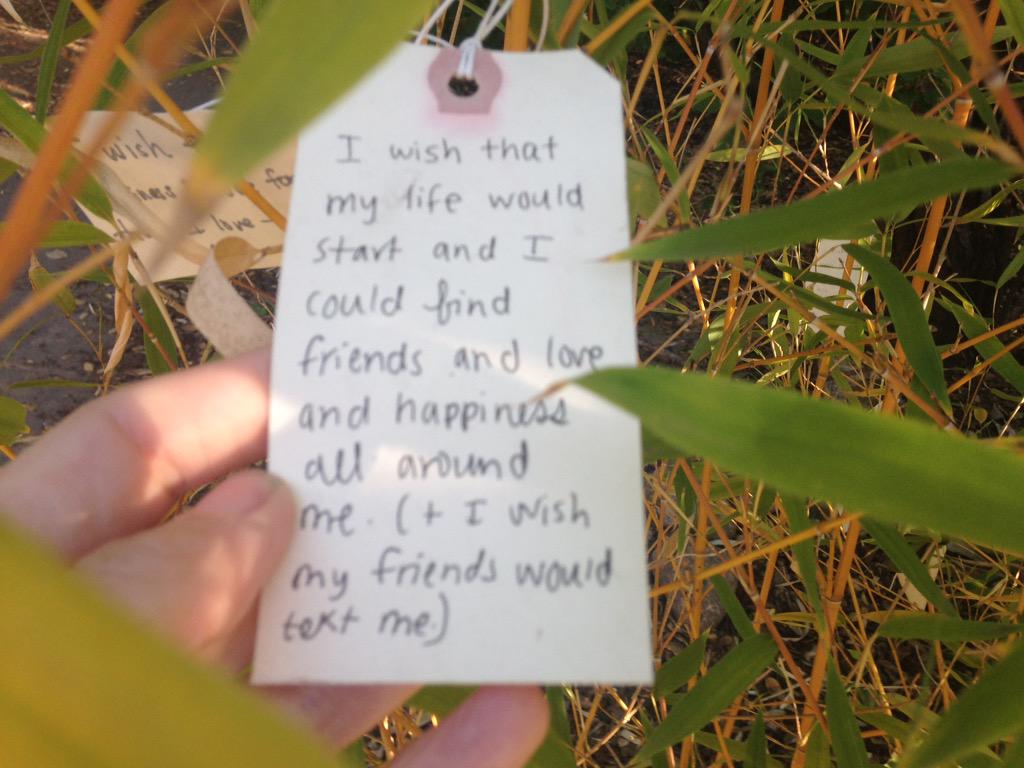 I wish that
my life would
start and I
could find
friends and love
and happiness
all around
me. (+ I wish
my friends would
text me.)
wish
love